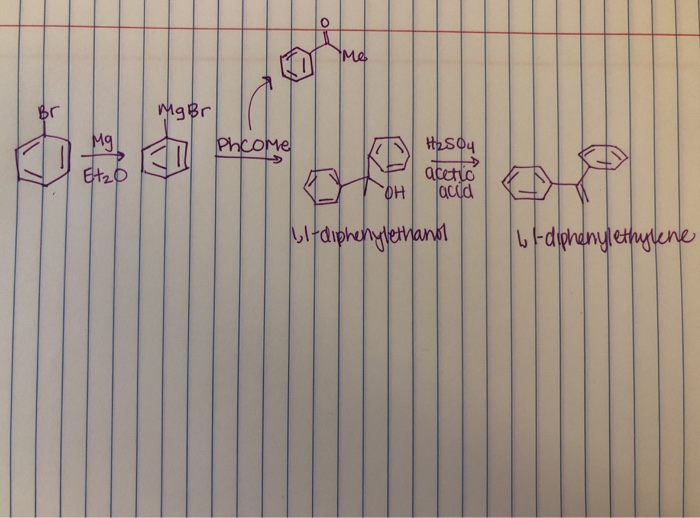 O
Me
Br
MgBr
Mg
Et₂O
PhCOMe
H₂SO₄
acetic
acid
OH
1,1-diphenylethanol
1,1-diphenylethylene